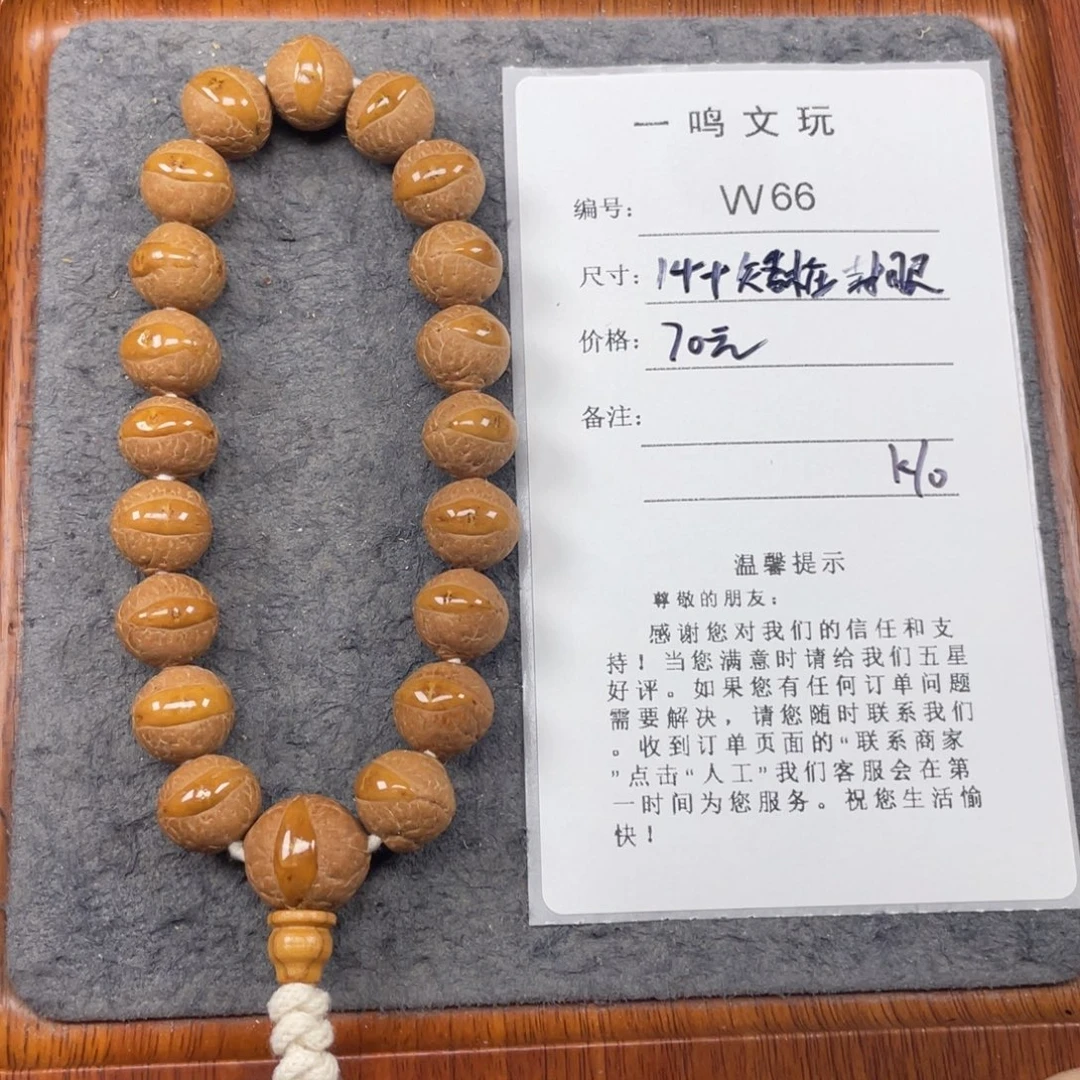 一鸣文玩
编号: W66
尺寸: 14+矮桩 封眼
价格: 70元
备注:
温馨提示
尊敬的朋友:
感谢您对我们的信任和支
持!当您满意时请给我们五星
好评。如果您有任何订单问题
需要解决,请您随时联系我们
。收到订单页面的“联系商家
”点击“人工”我们客服会在第
一时间为您服务。祝您生活愉
快!